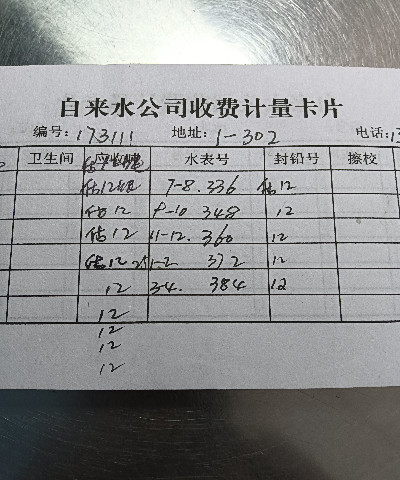 自来水公司收费计量卡片
编号:173111 地址:1-302 电话:13
卫生间 水表号 封铅号 擦校
估12 7-8. 336 估12
估12 9-10 348 12
估12 11-12. 360 12
估12 1-2 372 12
12 3-4. 384 12
12
12
12
12